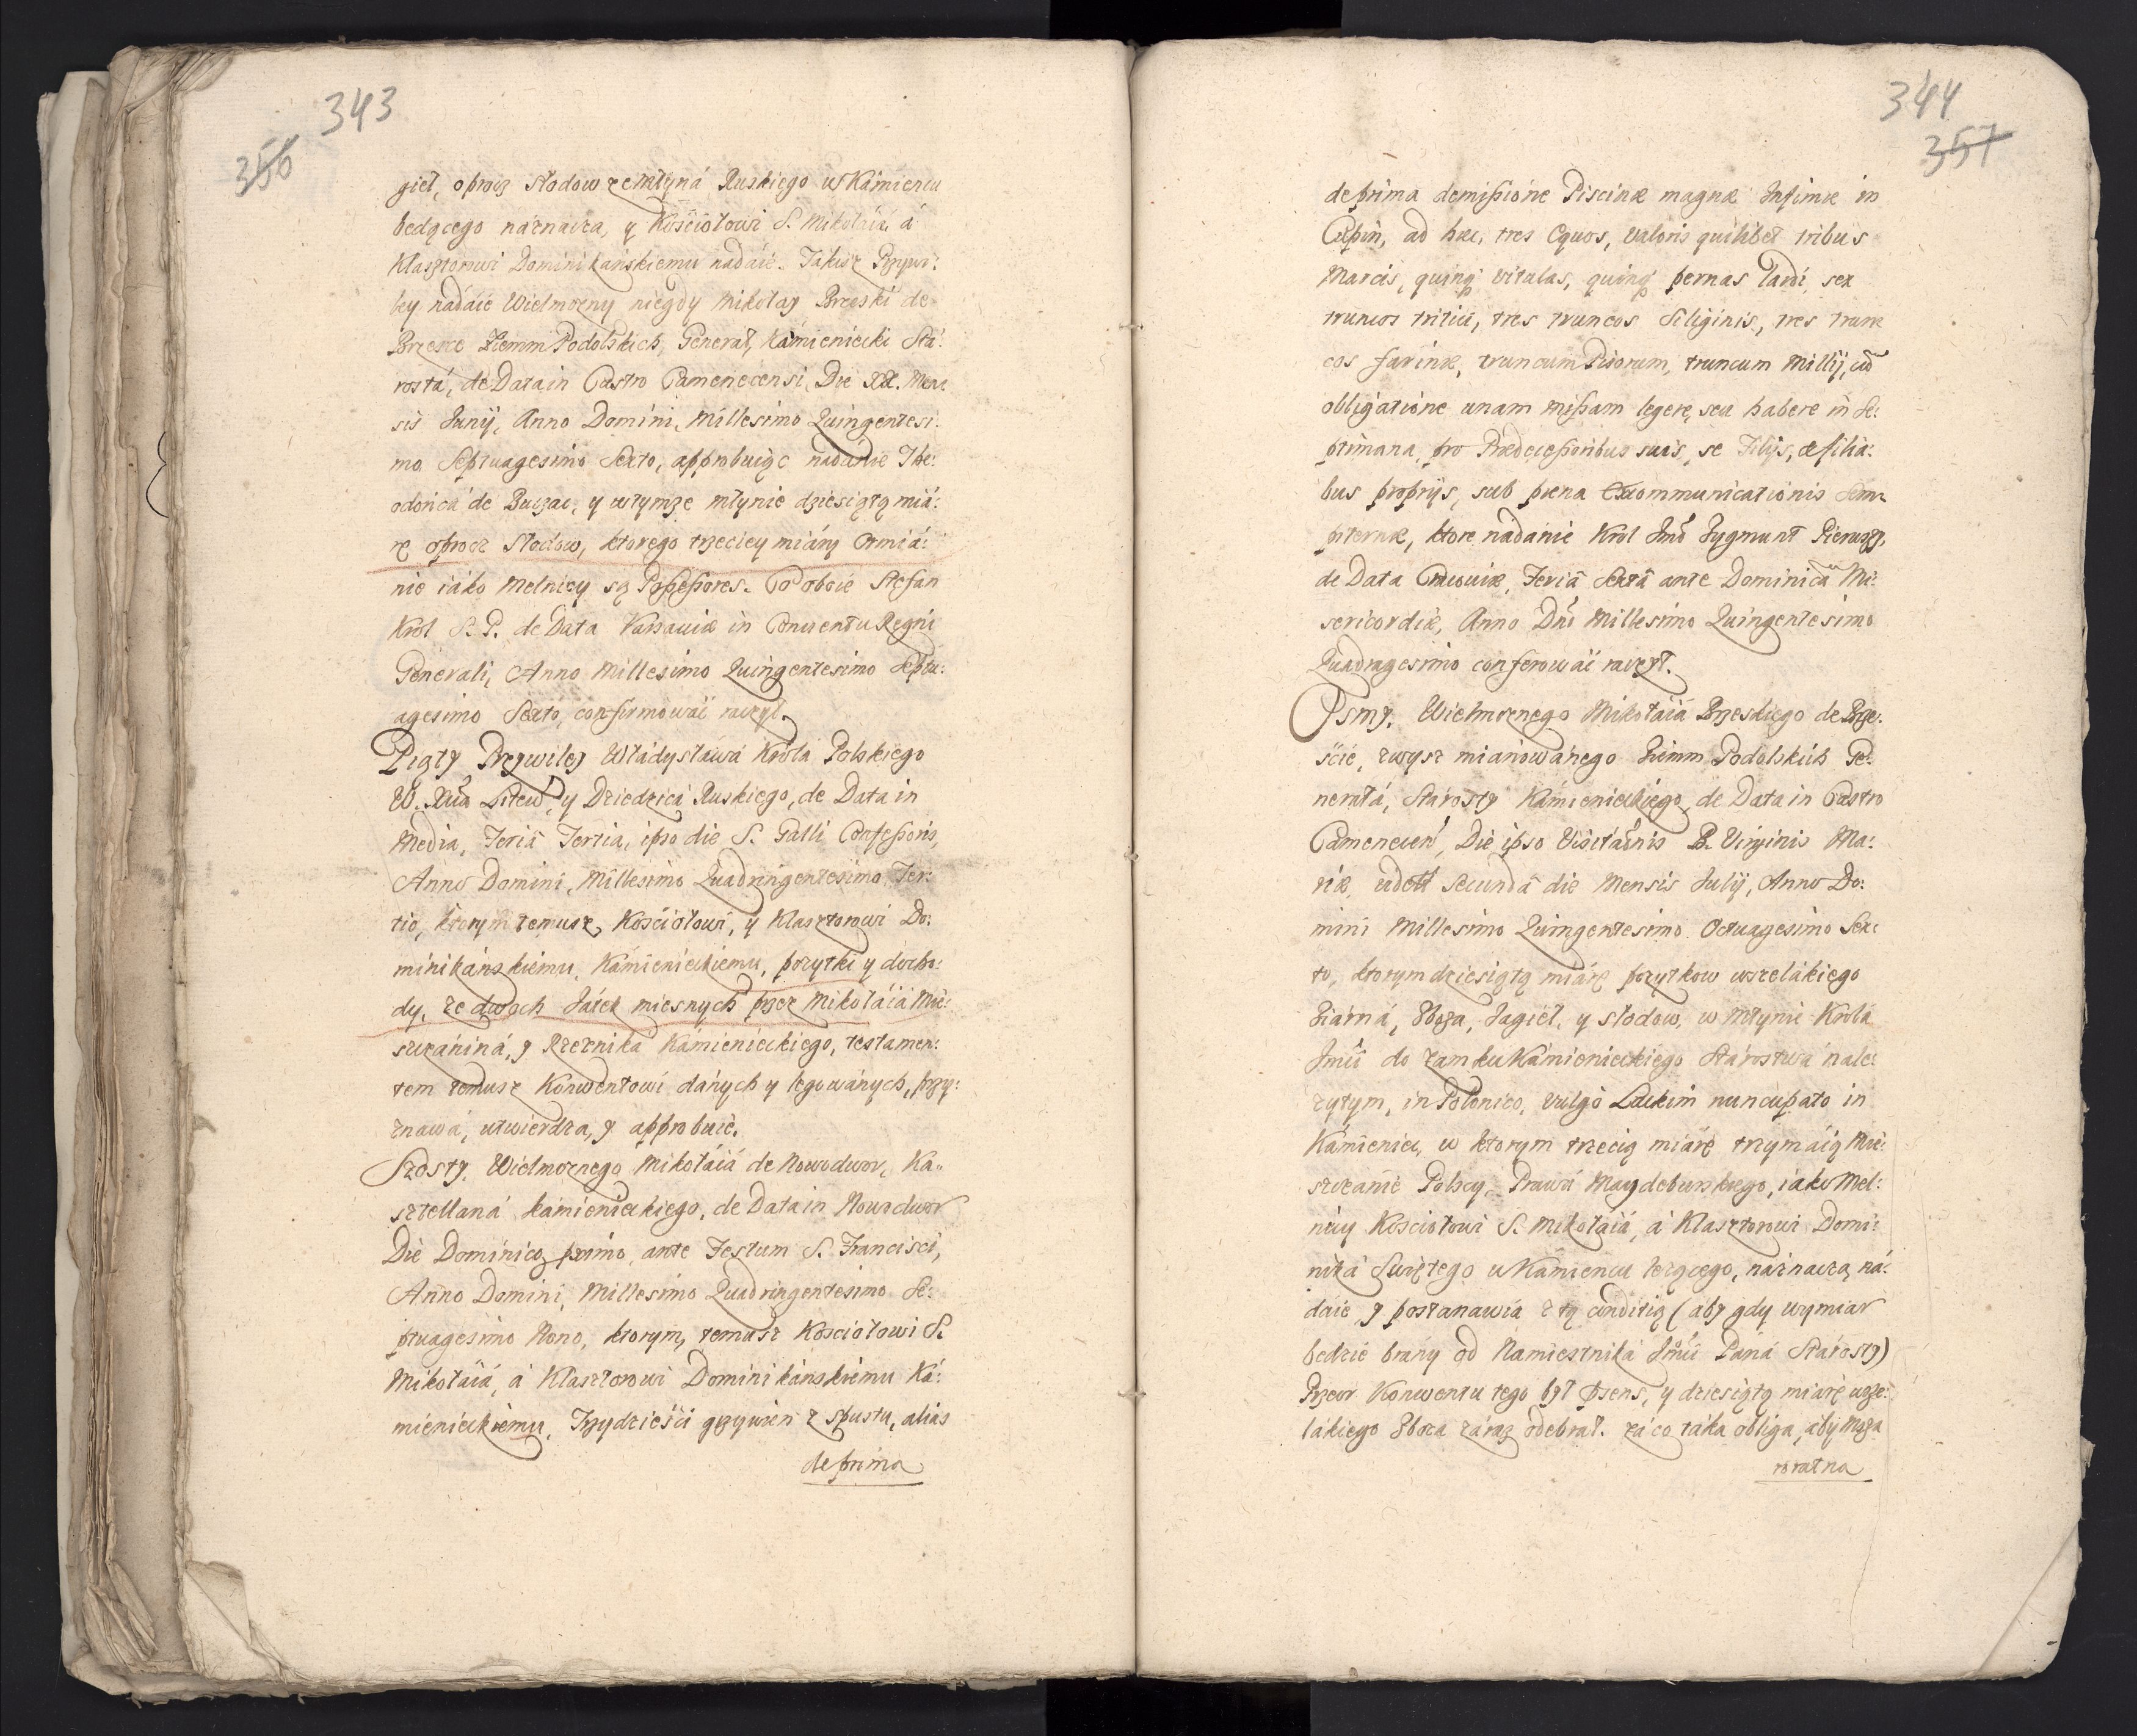 343
356
gieł, oprocz Słodow ze młyná Ruskiego w Kámiencu
będącego náznacza, y Kościołowi S. Mikołáiá á
Klasztorowi Dominikańskiemu nadáie. Tákisz Przywi:
ley nadáie Wielmozny niegdy Mikołay Brzeski de
Brzezie Ziemm Podolskich, Generał, Kámieniecki Stá:
rostá, de Data in Castro Camenecensi, Die XX. Men:
sis Junij, Anno Domini, Millesimo Quingentesi:
mo Septuagesimo Sexto, approbuiąc nadánie The:
odoricá de Buczac, y w tymze młynie dziesiątą miá:
rę oprocz Słodow, ktorego trzeciey miáry Ormiá:
nie iáko Melnicy są Possessores. Co oboie Stefan
Krol S. P. de Data Varsauiæ in Conuentu Regni
Generali, Anno Millesimo Quingentesimo Septu:
agesimo Sexto, confirmowáć raczył.
Piąty Przywiley Włádysłáwá Krolá Polskiego
W. Xcia Litew, y Dziedzicá Ruskiego, de Data in
Media, Feriâ Tertia, ipso die S. Galli Confessoris,
Anno Domini, Millesimo Quadringentesimo Ter:
tio, ktorym temusz Kościołowi, y Klasztorowi Do:
minikańskiemu, Kámienieckiemu, pozytki y docho:
dy, ze dwoch Jatek miesnych przez Mikołáiá Mie:
szczániná, y Rzezniká Kámienieckiego, testamen:
tem temusz Konwentowi dánych y legowánych, przy:
znawá, utwierdza, y approbuie.
Szosty. Wielmoznego Mikołáiá de Nowodwor, Ka:
sztellaná kámienieckiego, de Data in Nowodwor
Die Dominico primo ante Festum S. Francisci,
Anno Domini, Millesimo Quadringentesimo Se:
ptuagesimo Nono, ktorym, temusz Kościołowi S.
Mikołáiá, á Klasztorowi Dominikáńskiemu Ká:
mienieckiemu, Trzydzieści grzywien z spustu, alias
de prima
344
357
de prima demissione Piscinæ magnæ Infimæ in
Czepin, ad hæc, tres Equos, valoris quilibet tribus
Marcis, quinq vitulas, quinq pernas lardi, sex
truncos tritici, tres truncos Siliginis, tres trun:
cos farinæ, truncum Pisorum, truncum Millij, cu
obligatione unam missam legere, seu habere in Se:
ptimana, pro Prædecessoribus suis, se Filijs, & filia:
bus proprijs, sub pœna Excommunicationis Sem:
piternæ, ktore nadánie Krol Jmć Zygmunt Pierwszy,
de Data Cracouiæ, Feriâ Sextâ ante Dominica Mi:
sericordiæ, Anno Dni Millesimo Quingentesimo
Quadragesimo conferowáć raczył.
Osmy. Wielmoznego Mikołáiá Brzeskiego de Brze:
ście, zwysz miánowánego Ziemm Podolskich Ge:
nerałá, Stárosty Kámienieckiego, de Data in Castro
Camenecen, Die ipso Visitaonis B. Virginis Ma:
riæ, eadem secundâ die Mensis Julij, Anno Do:
mini Millesimo Quingentesimo Octuagesimo Sex:
to, ktorym dziesiątą miárę pozytkow wszelákiego
Ziárná, Zboza, Jagieł, y słodow, w Młynie Krolá
Jmci do zamku Kámienieckiego Stárostwá nale:
zytym, in Polonico, vulgo Lackim nuncupato in
Kámieniec, w ktorym trzecią miárę trzymáią Mie:
szczánie Polscy, Prawá Maydeburskiego, iáko Mel:
nicy Kościołowi S. Mikołáiá, á Klasztorowi Domi:
niká Swiętego w Kámiencu lezącego, náznacza, ná:
daie, y postanawia z tą conditią (aby gdy wymiar
będzie brány od Namiestniká Jmci Páná Stárosty)
Przeor Konwentu tego był psens, y dziesiątą miárę wsze:
lákiego Zboza záraz odebrał. zá co táka obliga, áby Msza
roratna